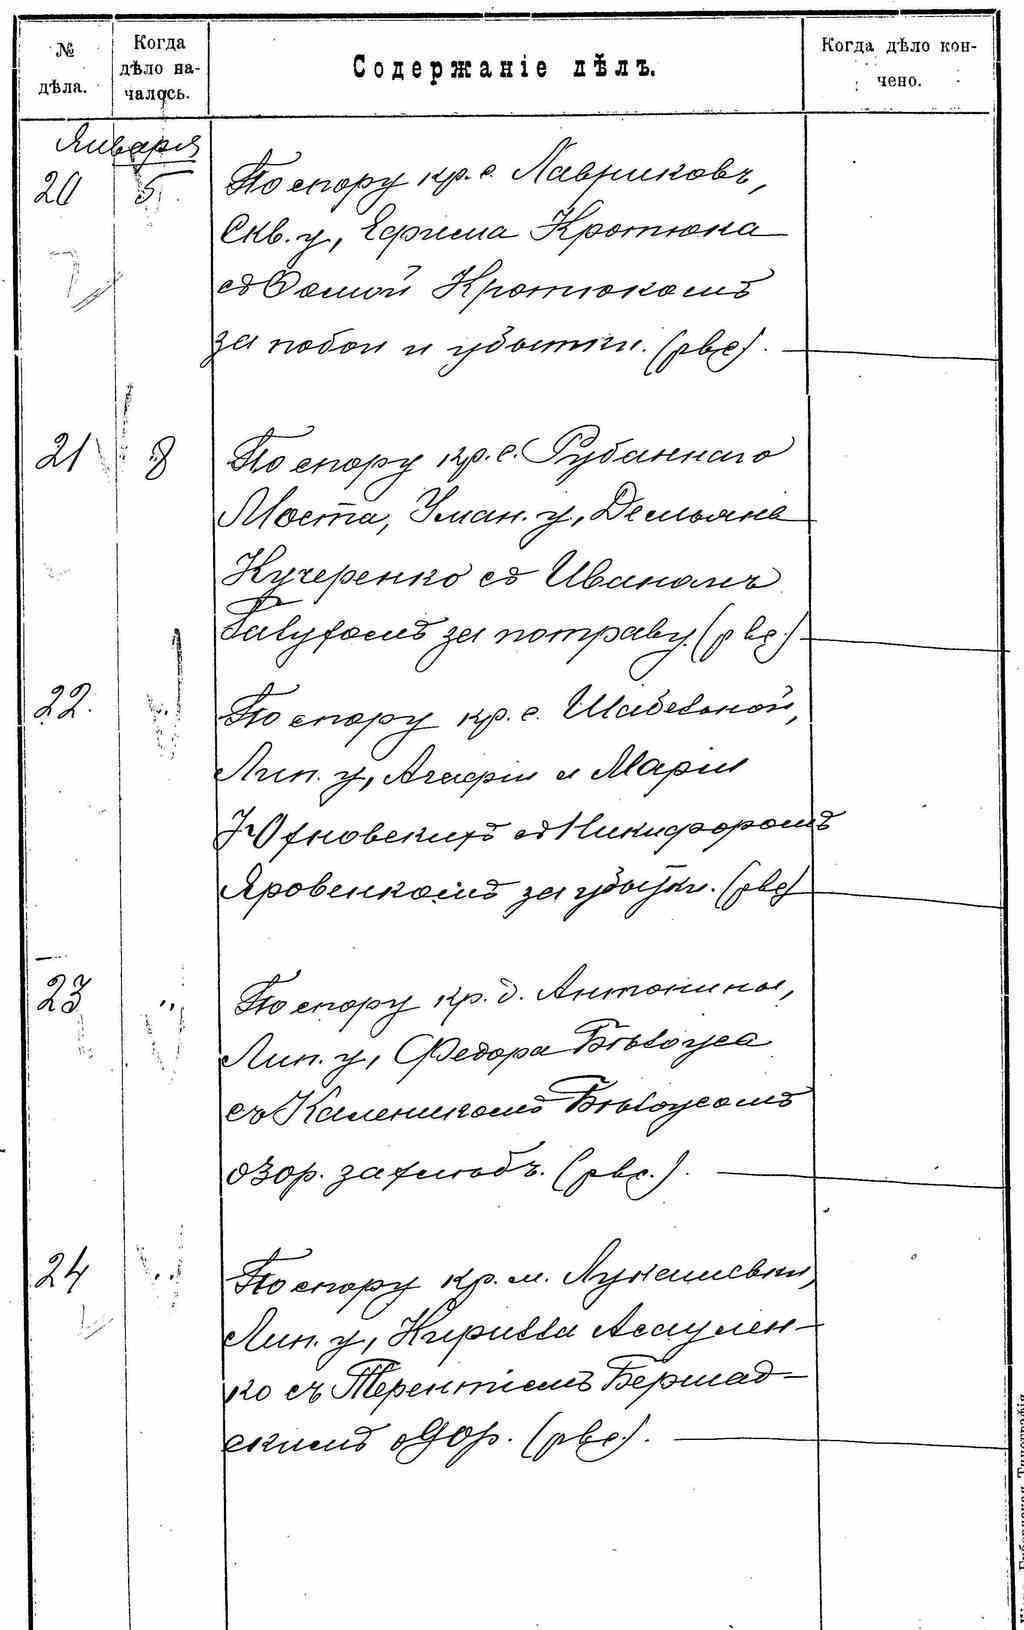 № дѣла.
Когда дѣло началось.
Содержаніе дѣлъ.
Когда дѣло кончено.
Января
20 5 По спору кр. с. Лавриковъ,
Скв. у, Ефима Кротюка
съ Сомой Кротюкомъ
за побои и убытки. (рвс).
21 8 По спору кр. с. Рубаннаго
Моста, Уман. у, Демьяна
Кучеренко съ Иваномъ
за потраву. (рвс)
22. По спору кр. с. Шабельной,
Лип. у, Агафіи и Маріи
съ Никифоромъ
Яровенкомъ за убытки. (рвс)
23 " По спору кр. д. Антонины,
Лип. у, Федора Бѣлоуса
съ Калеником Бѣлоусомъ
озор. за хлѣбъ. (рвс.).
24 " По спору кр. м. Лукашевки,
Лип. у, Кирилла Асаулен-
ко съ Терентіемъ Бершад-
скимъ о дор. (рвс).